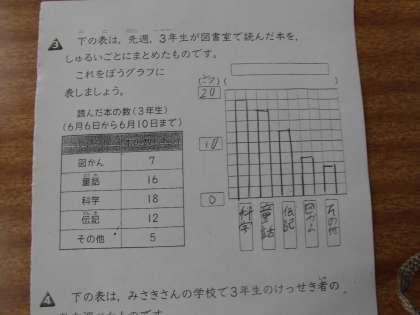 3 下の表は，先週，3年生が図書室で読んだ本を，
しゅるいごとにまとめたものです。
これをぼうグラフに
表しましょう。
読んだ本の数(3年生)
(6月6日から6月10日まで)
図かん 7
童話 16
科学 18
伝記 12
その他 5
(さつ)
20
10
0
科学
童話
伝記
図かん
その他
4 下の表は，みさきさんの学校で3年生のけっせき者の